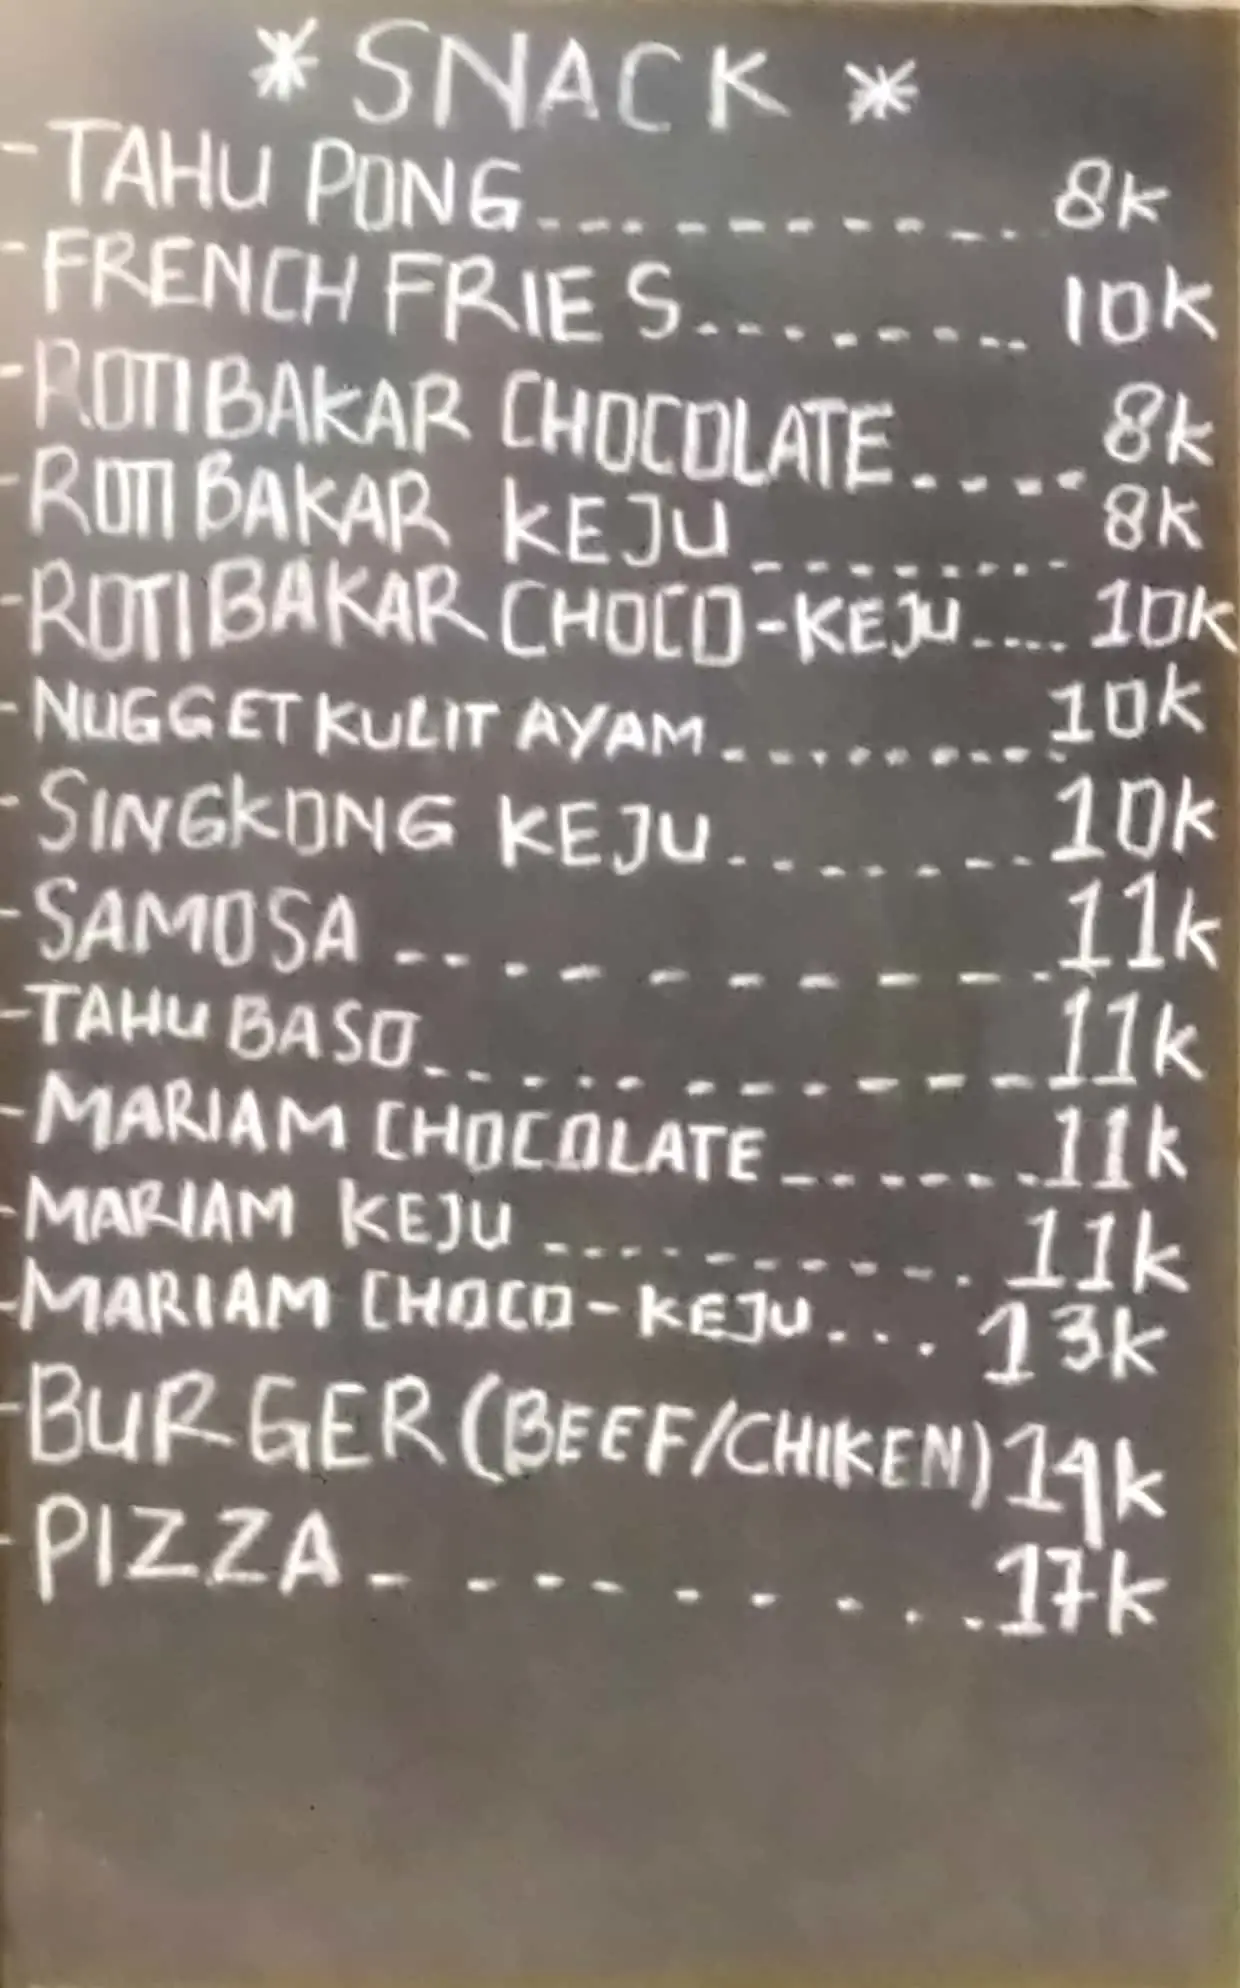 * SNACK *
- TAHU PONG.......... 8K
- FRENCH FRIES........ 10K
- ROTI BAKAR CHOCOLATE.... 8K
- ROTI BAKAR KEJU........ 8K
- ROTI BAKAR CHOCO-KEJU.... 10K
- NUGGET KULIT AYAM......... 10K
- SINGKONG KEJU....... 10K
- SAMOSA.......... 11K
- TAHU BASO........... 11K
- MARIAM CHOCOLATE....... 11K
- MARIAM KEJU......... 11K
- MARIAM CHOCO-KEJU... 13K
- BURGER (BEEF/CHIKEN) 14K
- PIZZA......... 17K